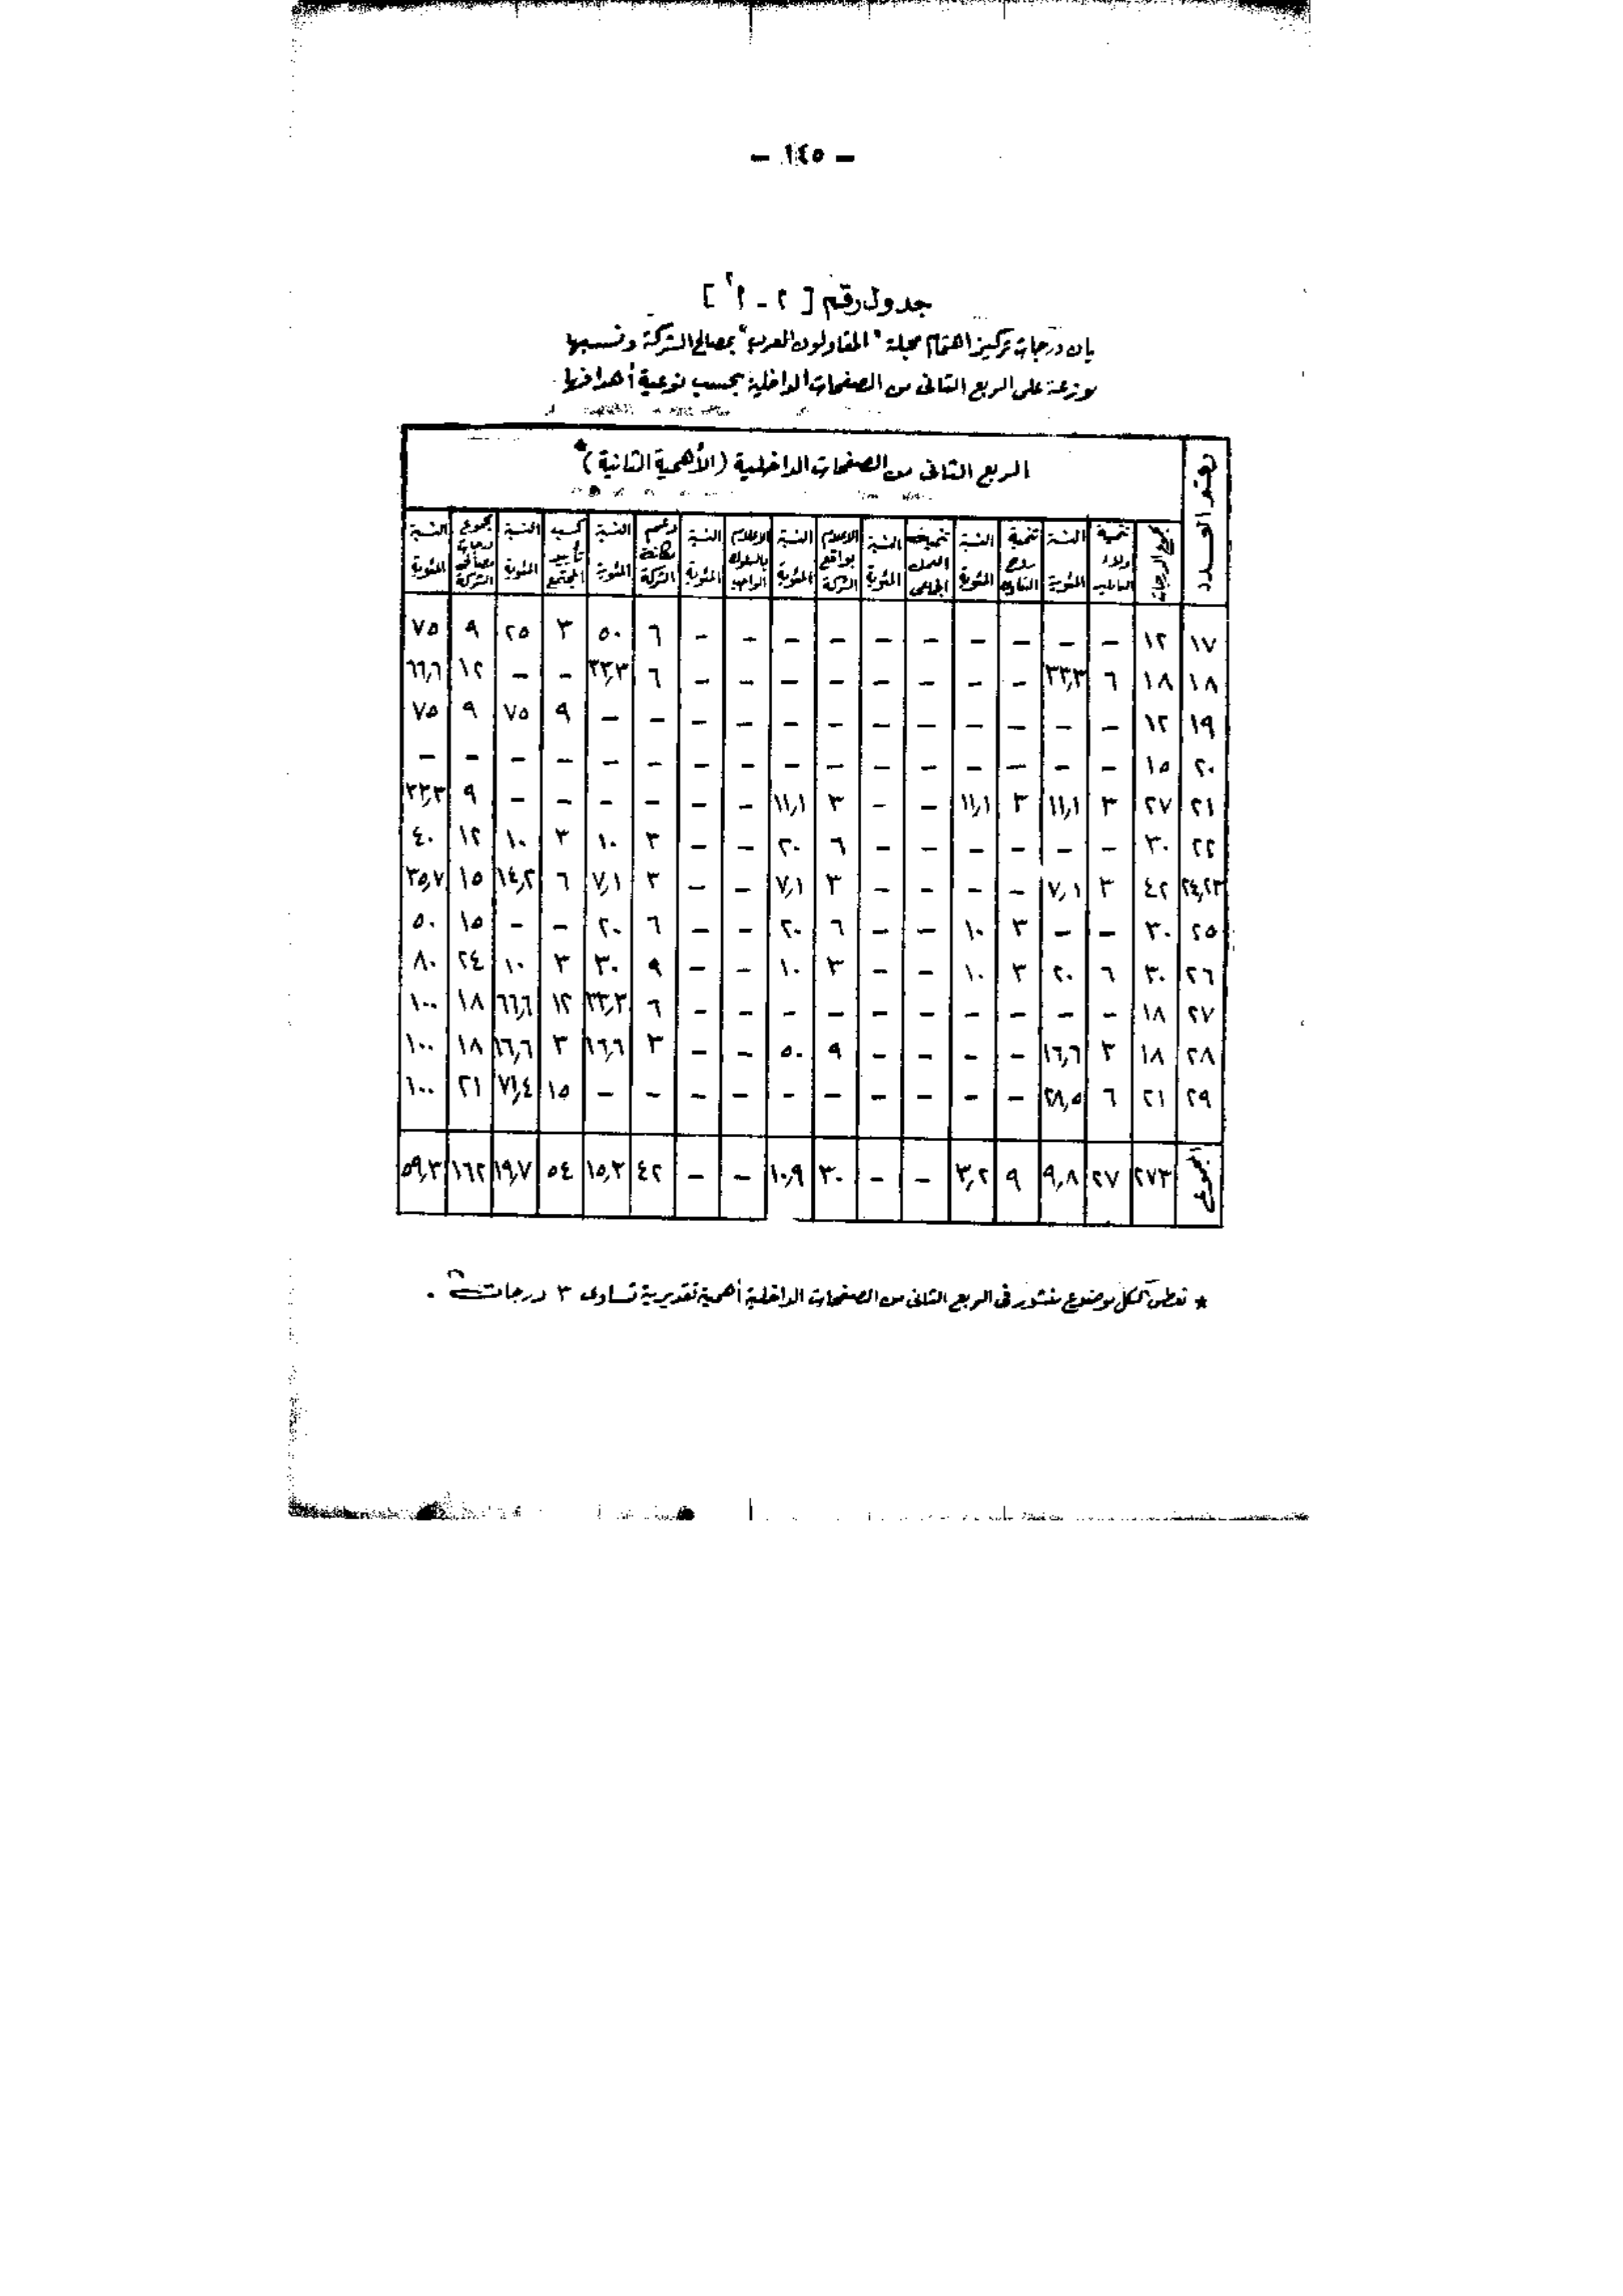 - ١٤٥ -
جدول رقم [ ٢ - أ٢ ]
بيان درجات تركيز اهتمام مجلة "المقاولون العرب" بمصالح الشركة ونسبها
موزعة على الربع الثانى من الصفحات الداخلية بحسب نوعية أهدافها
الربع الثانى من الصفحات الداخلية (الأهمية الثانية)*
العدد | مجموع الدرجات | تنمية ولاء العاملين | النسبة المئوية | تنمية روح التعاون | النسبة المئوية | العمل الجماعى | النسبة المئوية | الاعلام بواقع الشركة | النسبة المئوية | الاعلام بالسلوك الواجب | النسبة المئوية | دعم مكانة الشركة | النسبة المئوية | كسب تأييد المجتمع | النسبة المئوية | مجموع درجات مصالح الشركة | النسبة المئوية
١٧ | ١٢ | - | - | - | - | - | - | - | - | - | - | ٦ | ٥٠ | ٣ | ٢٥ | ٩ | ٧٥
١٨ | ١٨ | ٦ | ٣٣,٣ | - | - | - | - | - | - | - | - | ٦ | ٣٣,٣ | - | - | ١٢ | ٦٦,٦
١٩ | ١٢ | - | - | - | - | - | - | - | - | - | - | - | - | ٩ | ٧٥ | ٩ | ٧٥
٢٠ | ١٥ | - | - | - | - | - | - | - | - | - | - | - | - | - | - | - | -
٢١ | ٢٧ | ٣ | ١١,١ | ٣ | ١١,١ | - | - | ٣ | ١١,١ | - | - | - | - | - | - | ٩ | ٣٣,٣
٢٢ | ٣٠ | - | - | - | - | - | - | ٦ | ٢٠ | - | - | ٣ | ١٠ | ٣ | ١٠ | ١٢ | ٤٠
٢٤,٢٣ | ٤٢ | ٣ | ٧,١ | - | - | - | - | ٣ | ٧,١ | - | - | ٣ | ٧,١ | ٦ | ١٤,٢ | ١٥ | ٣٥,٧
٢٥ | ٣٠ | - | - | ٣ | ١٠ | - | - | ٦ | ٢٠ | - | - | ٦ | ٢٠ | - | - | ١٥ | ٥٠
٢٦ | ٣٠ | ٦ | ٢٠ | ٣ | ١٠ | - | - | ٣ | ١٠ | - | - | ٩ | ٣٠ | ٣ | ١٠ | ٢٤ | ٨٠
٢٧ | ١٨ | - | - | - | - | - | - | - | - | - | - | ٦ | ٣٣,٣ | ١٢ | ٦٦,٦ | ١٨ | ١٠٠
٢٨ | ١٨ | ٣ | ١٦,٦ | - | - | - | - | ٩ | ٥٠ | - | - | ٣ | ١٦,٦ | ٣ | ١٦,٦ | ١٨ | ١٠٠
٢٩ | ٢١ | ٦ | ٢٨,٥ | - | - | - | - | - | - | - | - | - | - | ١٥ | ٧١,٤ | ٢١ | ١٠٠
المجموع | ٢٧٣ | ٢٧ | ٩,٨ | ٩ | ٣,٢ | - | - | ٣٠ | ١٠,٩ | - | - | ٤٢ | ١٥,٣ | ٥٤ | ١٩,٧ | ١٦٢ | ٥٩,٣
* تعطى لكل موضوع منشور فى الربع الثانى من الصفحات الداخلية أهمية تقديرية تساوى ٣ درجات .